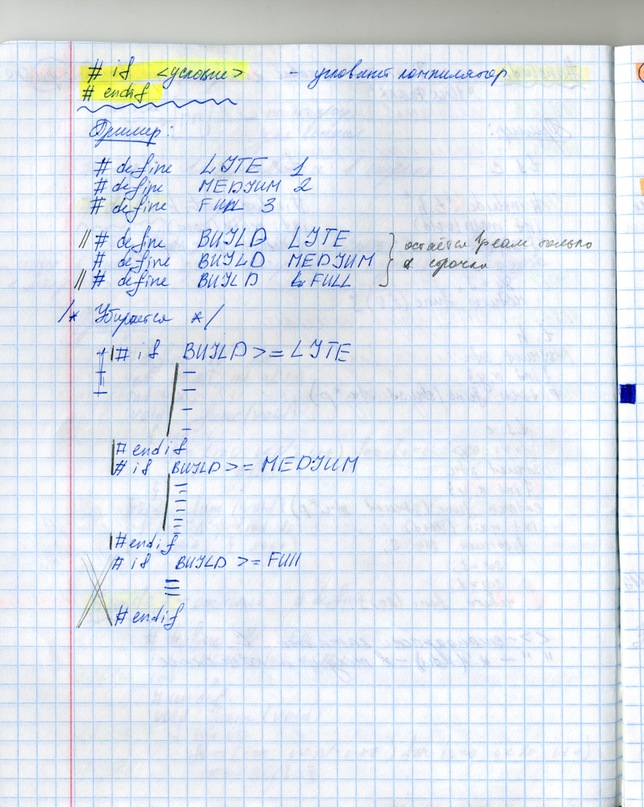 # if <условие> - условный компилятор
# endif
Пример:
# define LYTE 1
# define MEDIUM 2
# define FULL 3
// # define BUILD LYTE
# define BUILD MEDIUM
// # define BUILD FULL
остаётся только
строчка
/* Убирается */
# if BUILD >= LYTE
# endif
# if BUILD >= MEDIUM
# endif
# if BUILD >= FUll
# endif